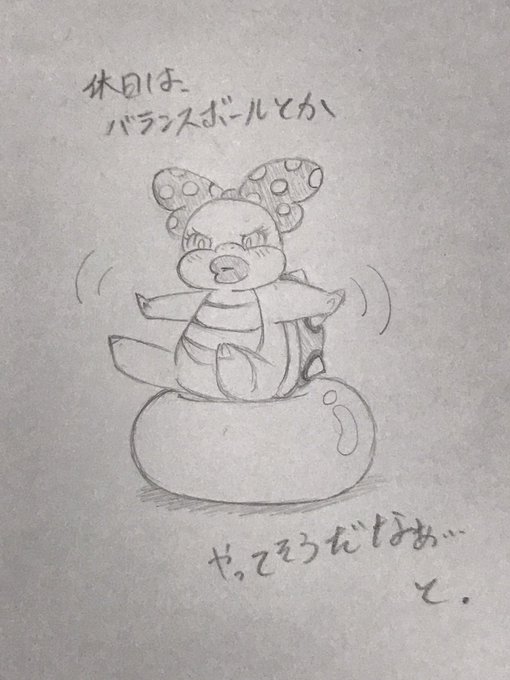 休日は、
バランスボールとか
やってそうだなぁ…
と.